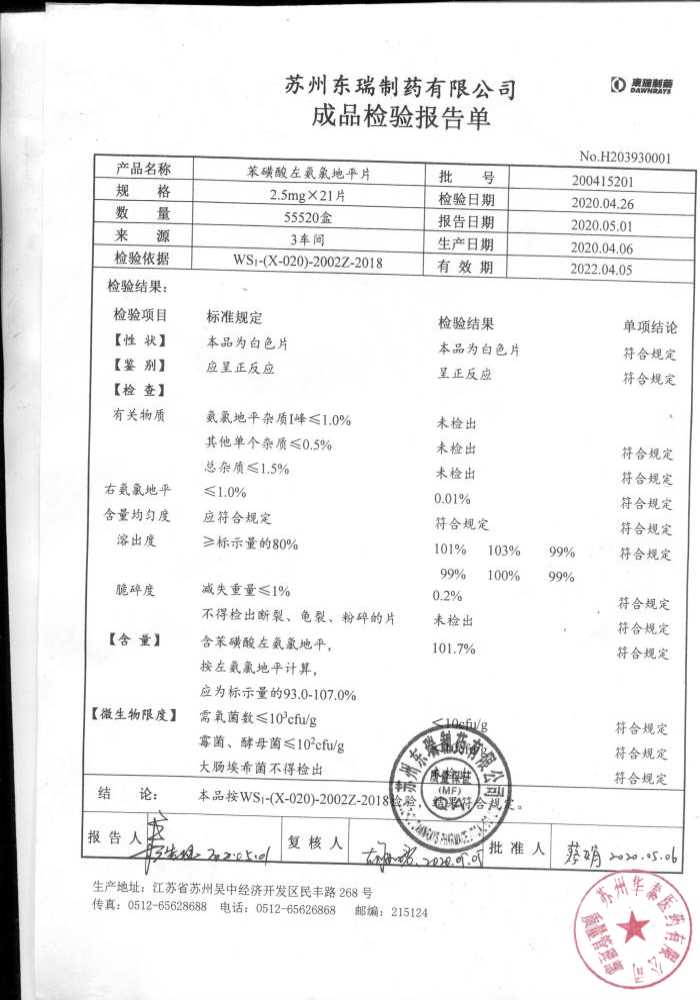 苏州东瑞制药有限公司
東瑞制藥
DAWNRAYS
成品检验报告单
No.H203930001
产品名称 苯磺酸左氨氯地平片 批 号 200415201
规 格 2.5mg×21片 检验日期 2020.04.26
数 量 55520盒 报告日期 2020.05.01
来 源 3车间 生产日期 2020.04.06
检验依据 WS₁-(X-020)-2002Z-2018 有 效 期 2022.04.05
检验结果：
检验项目 标准规定 检验结果 单项结论
【性 状】 本品为白色片 本品为白色片 符合规定
【鉴 别】 应呈正反应 呈正反应 符合规定
【检 查】
有关物质 氨氯地平杂质I峰≤1.0% 未检出 符合规定
其他单个杂质≤0.5% 未检出 符合规定
总杂质≤1.5% 未检出 符合规定
右氨氯地平 ≤1.0% 0.01% 符合规定
含量均匀度 应符合规定 符合规定 符合规定
溶出度 ≥标示量的80% 101% 103% 99%
99% 100% 99%
脆碎度 减失重量≤1% 0.2% 符合规定
不得检出断裂、龟裂、粉碎的片 未检出 符合规定
【含 量】 含苯磺酸左氨氯地平， 101.7% 符合规定
按左氨氯地平计算，
应为标示量的93.0-107.0%
【微生物限度】 需氧菌数≤10³cfu/g <10cfu/g 符合规定
霉菌、酵母菌≤10²cfu/g 符合规定
大肠埃希菌不得检出 符合规定
苏州东瑞制药有限公司
质量保证
(MF)
QA
结 论： 本品按WS₁-(X-020)-2002Z-2018检验，结果符合规定。
报 告 人 2020.05.01 复 核 人 2020.05.05 批 准 人 蔡明 2020.05.06
生产地址：江苏省苏州吴中经济开发区民丰路 268 号
传真：0512-65628688 电话：0512-65626868 邮编：215124
苏州华泰医药有限公司
质量管理专用章